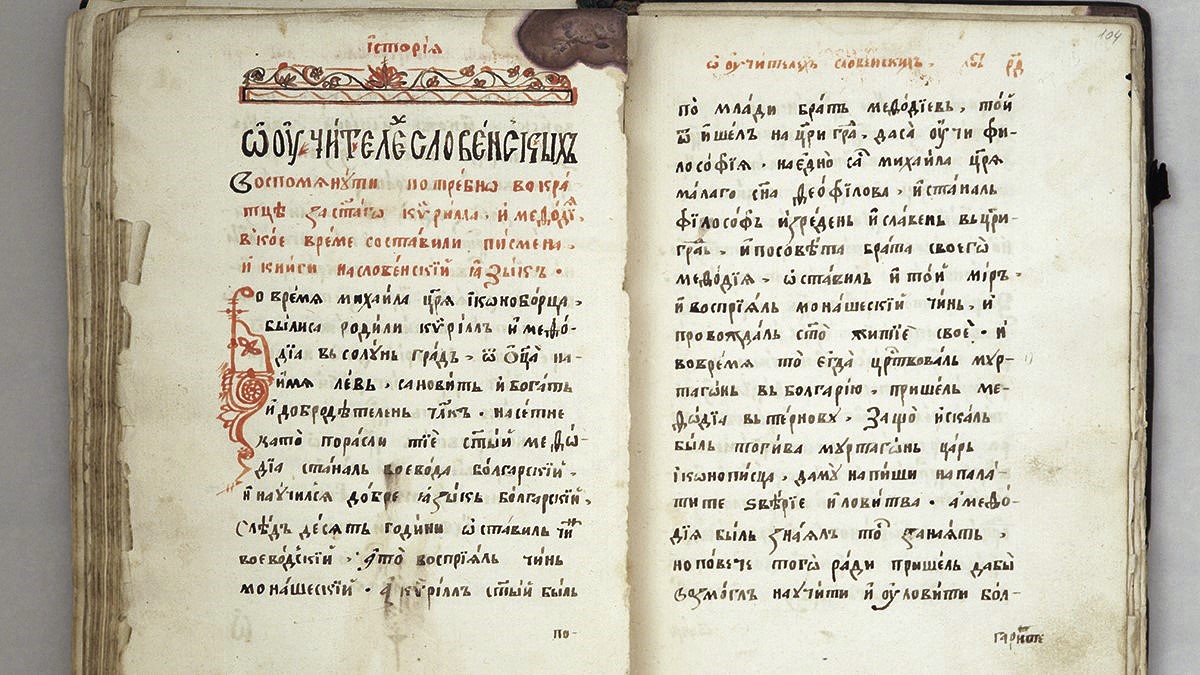 їсторїѧ
ѽ оу҆чи́телеⷯ слове́нскыхъ
Воспомѧнꙋ́ти потре́бнѡ вокра́
тцѣ за ст҃а́гѡ кѷри́лла, и҆ меѳо́дїѧ,
в кое́ вре́ме соста́вили пи́смена,
и҆ кни́ги на слове́нскїй ꙗ҆зы́къ.
о вре́мѧ михаи́ла цр҃ѧ і҆конобо́рца,
бы́лисѧ роди́ли кѷри́ллъ и҆ меѳо́-
дїа въ солу́нь гра́дъ, ѿ ѻ҆ц҃а̀ на-
и҆́мѧ ле́въ, санови́тъ и҆ бога́тъ
и҆ доброде́теленъ та́кѡ. насе́тне
като̀ пора́сли тїе ст҃ы́й меѳѡ́-
дїа ста́налъ воево́да бо́лгарскїй,
и҆ научи́лсѧ до́бре ꙗ҆зы́къ бо́лгарскїй,
Слѣ́дъ де́сѧтъ годи́ни ѡ҆ста́вилъ чи́нъ
воево́дскїй, а҆ то̀ воспрїѧ́лъ чи́нъ
мона́шескїй. а҆ кѷри́ллъ ст҃ы́й бы́лъ
по-
104
ѽ оу҆чи́телѧхъ слове́нскихъ. рд҃
по̀ мла́ди бра́тъ меѳо́дїевъ, то́й
ѿи́шелъ на цр҃и гра́дъ, да сѧ̀ оу҆́чи фи-
лосо́фїѧ. на є҆́дно са҃ михаи́ла цр҃ѧ
ма́лаго сн҃а ѳео́филова, и҆ ста́налъ
фїлосо́фъ и҆зре́денъ и҆ сла́венъ въ цр҃и-
гра́дъ, и҆ по совѣ́та бра́та своегѡ̀
меѳо́дїѧ, ѡ҆ста́вилъ и҆ то́й мі́ръ.
и҆ воспрїѧ́лъ мона́шескїй чи́нъ, и҆
провожда́лъ ст҃о̀ житїѐ своѐ. и҆
вовре́мѧ то̀ є҆гда̀ црⷭ҇твова́лъ мур-
та́гѡнъ въ болга́рїю, прише́лъ ме-
ѳѡ́дїа въ те́рновꙋ, защо̀ и҆ска́лъ
бы́лъ тоги́ва мурта́гѡнъ ца́рь
і҆конопи́сца, да мꙋ̀ напи́ши на пала́-
ти те ѕвѣ́рїе и҆ лови́тва. а҆ меѳо́-
дїа бы́лъ зна́ѧлъ то́ѧ занаѧ́тъ,
но по́вече тогѡ̀ ра́ди прише́лъ дабы̀
возмо́глъ научи́ти и҆ оу҆лови́ти бо́л-
гари те